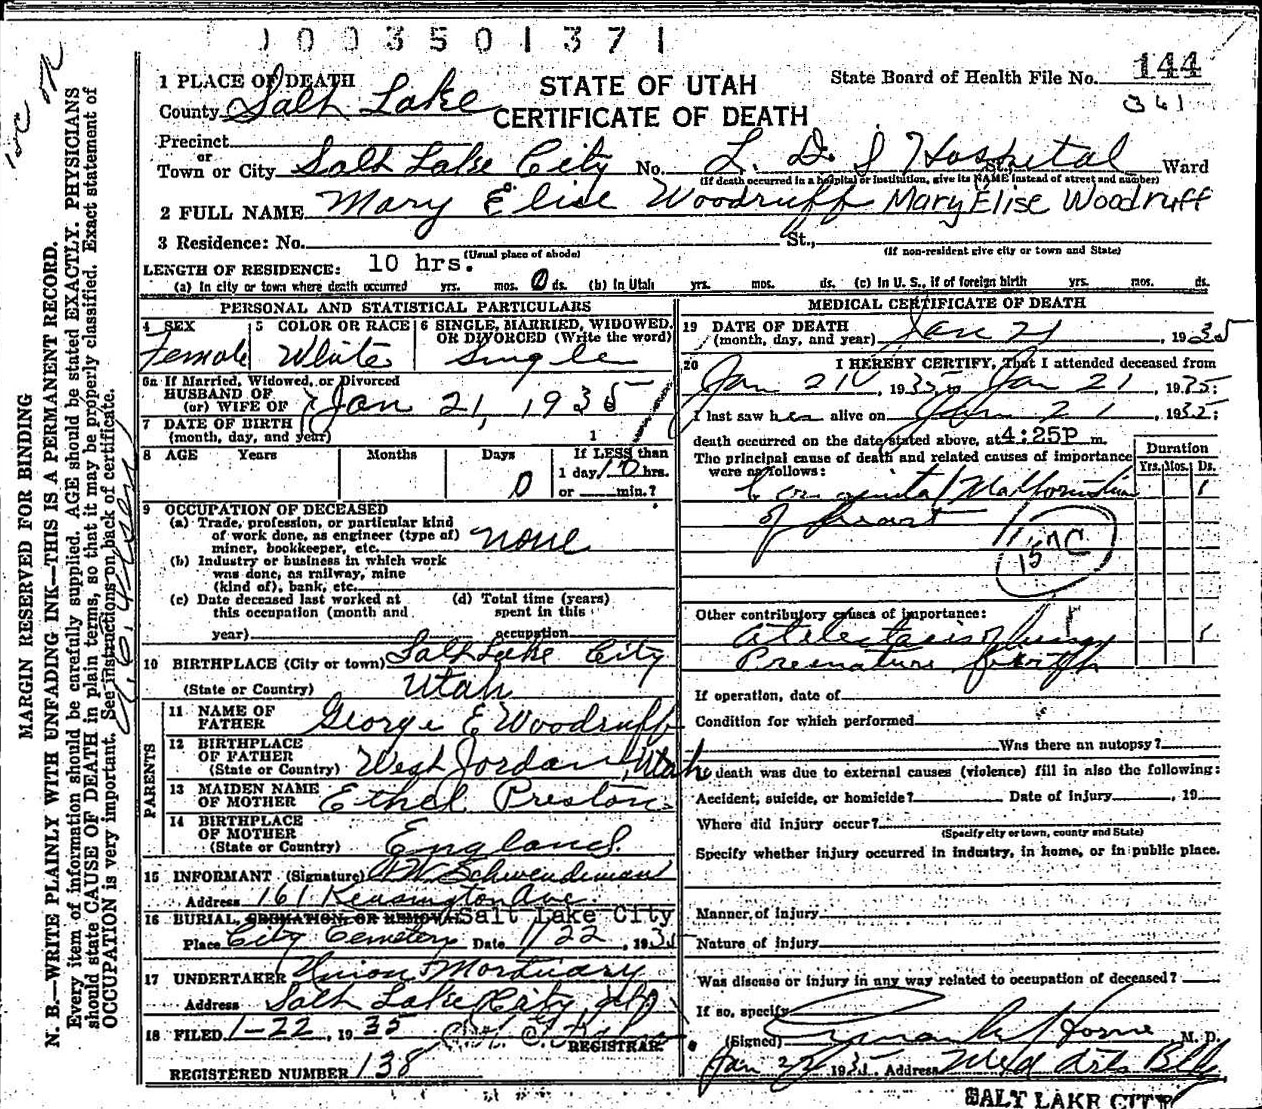 1003501371
144
361
STATE OF UTAH
CERTIFICATE OF DEATH
State Board of Health File No.
1 PLACE OF DEATH
County Salt Lake
Precinct
or
Town or City Salt Lake City No. L. D. S Hospital St. Ward
(If death occurred in a hospital or institution, give its NAME instead of street and number)
2 FULL NAME Mary Elise Woodruff Mary Elise Woodruff
3 Residence: No. St.,
(Usual place of abode) (If non-resident give city or town and State)
LENGTH OF RESIDENCE: 10 hrs.
(a) In city or town where death occurred yrs. mos. 0 ds. (b) In Utah yrs. mos. ds. (c) In U. S., if of foreign birth yrs. mos. ds.
PERSONAL AND STATISTICAL PARTICULARS
4 SEX
Female
5 COLOR OR RACE
White
6 SINGLE, MARRIED, WIDOWED, OR DIVORCED (Write the word)
Single
6a If Married, Widowed, or Divorced
HUSBAND OF
(or) WIFE OF
Jan 21, 1935
7 DATE OF BIRTH
(month, day, and year) 1
8 AGE Years Months Days If LESS than
0 1 day 10 hrs.
or min.?
9 OCCUPATION OF DECEASED
(a) Trade, profession, or particular kind
of work done, as engineer (type of)
miner, bookkeeper, etc. none
(b) Industry or business in which work
was done, as railway, mine
(kind of), bank, etc.
(c) Date deceased last worked at
this occupation (month and
year)
(d) Total time (years)
spent in this
occupation
10 BIRTHPLACE (City or town) Salt Lake City
(State or Country) Utah
PARENTS
11 NAME OF
FATHER George E Woodruff
12 BIRTHPLACE
OF FATHER
(State or Country) West Jordan, Utah
13 MAIDEN NAME
OF MOTHER Ethel Preston
14 BIRTHPLACE
OF MOTHER
(State or Country) England
15 INFORMANT (Signature) Schwendiman
Address 161 Kensington Ave
16 BURIAL, CREMATION OR REMOVAL Salt Lake City
Place City Cemetery Date 1/22, 1935
17 UNDERTAKER Union Mortuary
Address Salt Lake City
18 FILED 1-22, 1935
REGISTRAR
REGISTERED NUMBER 138
MEDICAL CERTIFICATE OF DEATH
19 DATE OF DEATH
(month, day, and year) Jan 21, 1935
20 I HEREBY CERTIFY, That I attended deceased from
Jan 21, 1935, to Jan 21, 1935;
I last saw her alive on Jan 21, 1935;
death occurred on the date stated above, at 4:25P m.
The principal cause of death and related causes of importance
were as follows:
Duration
Yrs. Mos. Ds.
Congenital Malformation 1
of heart
157C
Other contributory causes of importance:
Atelectasis of lungs 1
Premature birth
If operation, date of
Condition for which performed
Was there an autopsy?
If death was due to external causes (violence) fill in also the following:
Accident, suicide, or homicide? Date of injury , 19
Where did injury occur?
(Specify city or town, county and State)
Specify whether injury occurred in industry, in home, or in public place.
Manner of injury
Nature of injury
Was disease or injury in any way related to occupation of deceased?
If so, specify
(Signed) Horne M. D.
Jan 22 1935. Address Med Arts Bldg
SALT LAKE CITY
MARGIN RESERVED FOR BINDING
N. B.—WRITE PLAINLY WITH UNFADING INK—THIS IS A PERMANENT RECORD.
Every item of information should be carefully supplied. AGE should be stated EXACTLY. PHYSICIANS
should state CAUSE OF DEATH in plain terms, so that it may be properly classified. Exact statement of
OCCUPATION is very important. See instructions on back of certificate.